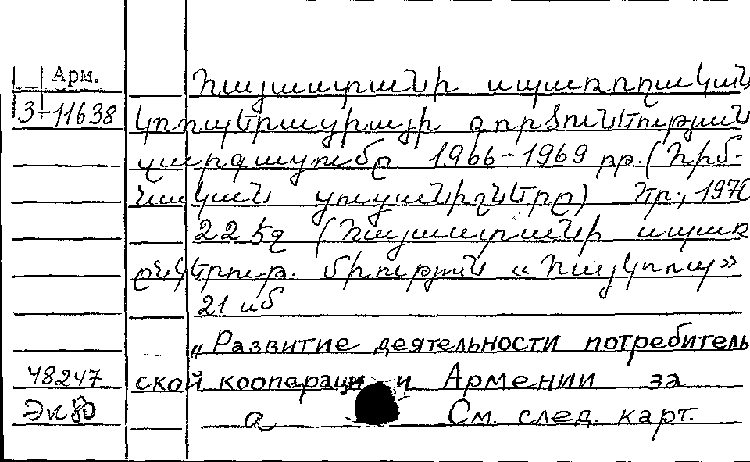 Арм. Հայաստանի սպառողական
3-11638 կոոպերացիայի գործունեության
զարգացումը 1966-1969 թթ. (Հիմ-
նական ցուցանիշները) Եր., 1970
22 էջ (Հայաստանի սպառ
ընկերութ. միություն «Հայկոոպ»
21 սմ
„Развитие деятельности потребитель
48247 ской кооперации Армении за
а См. след. карт.